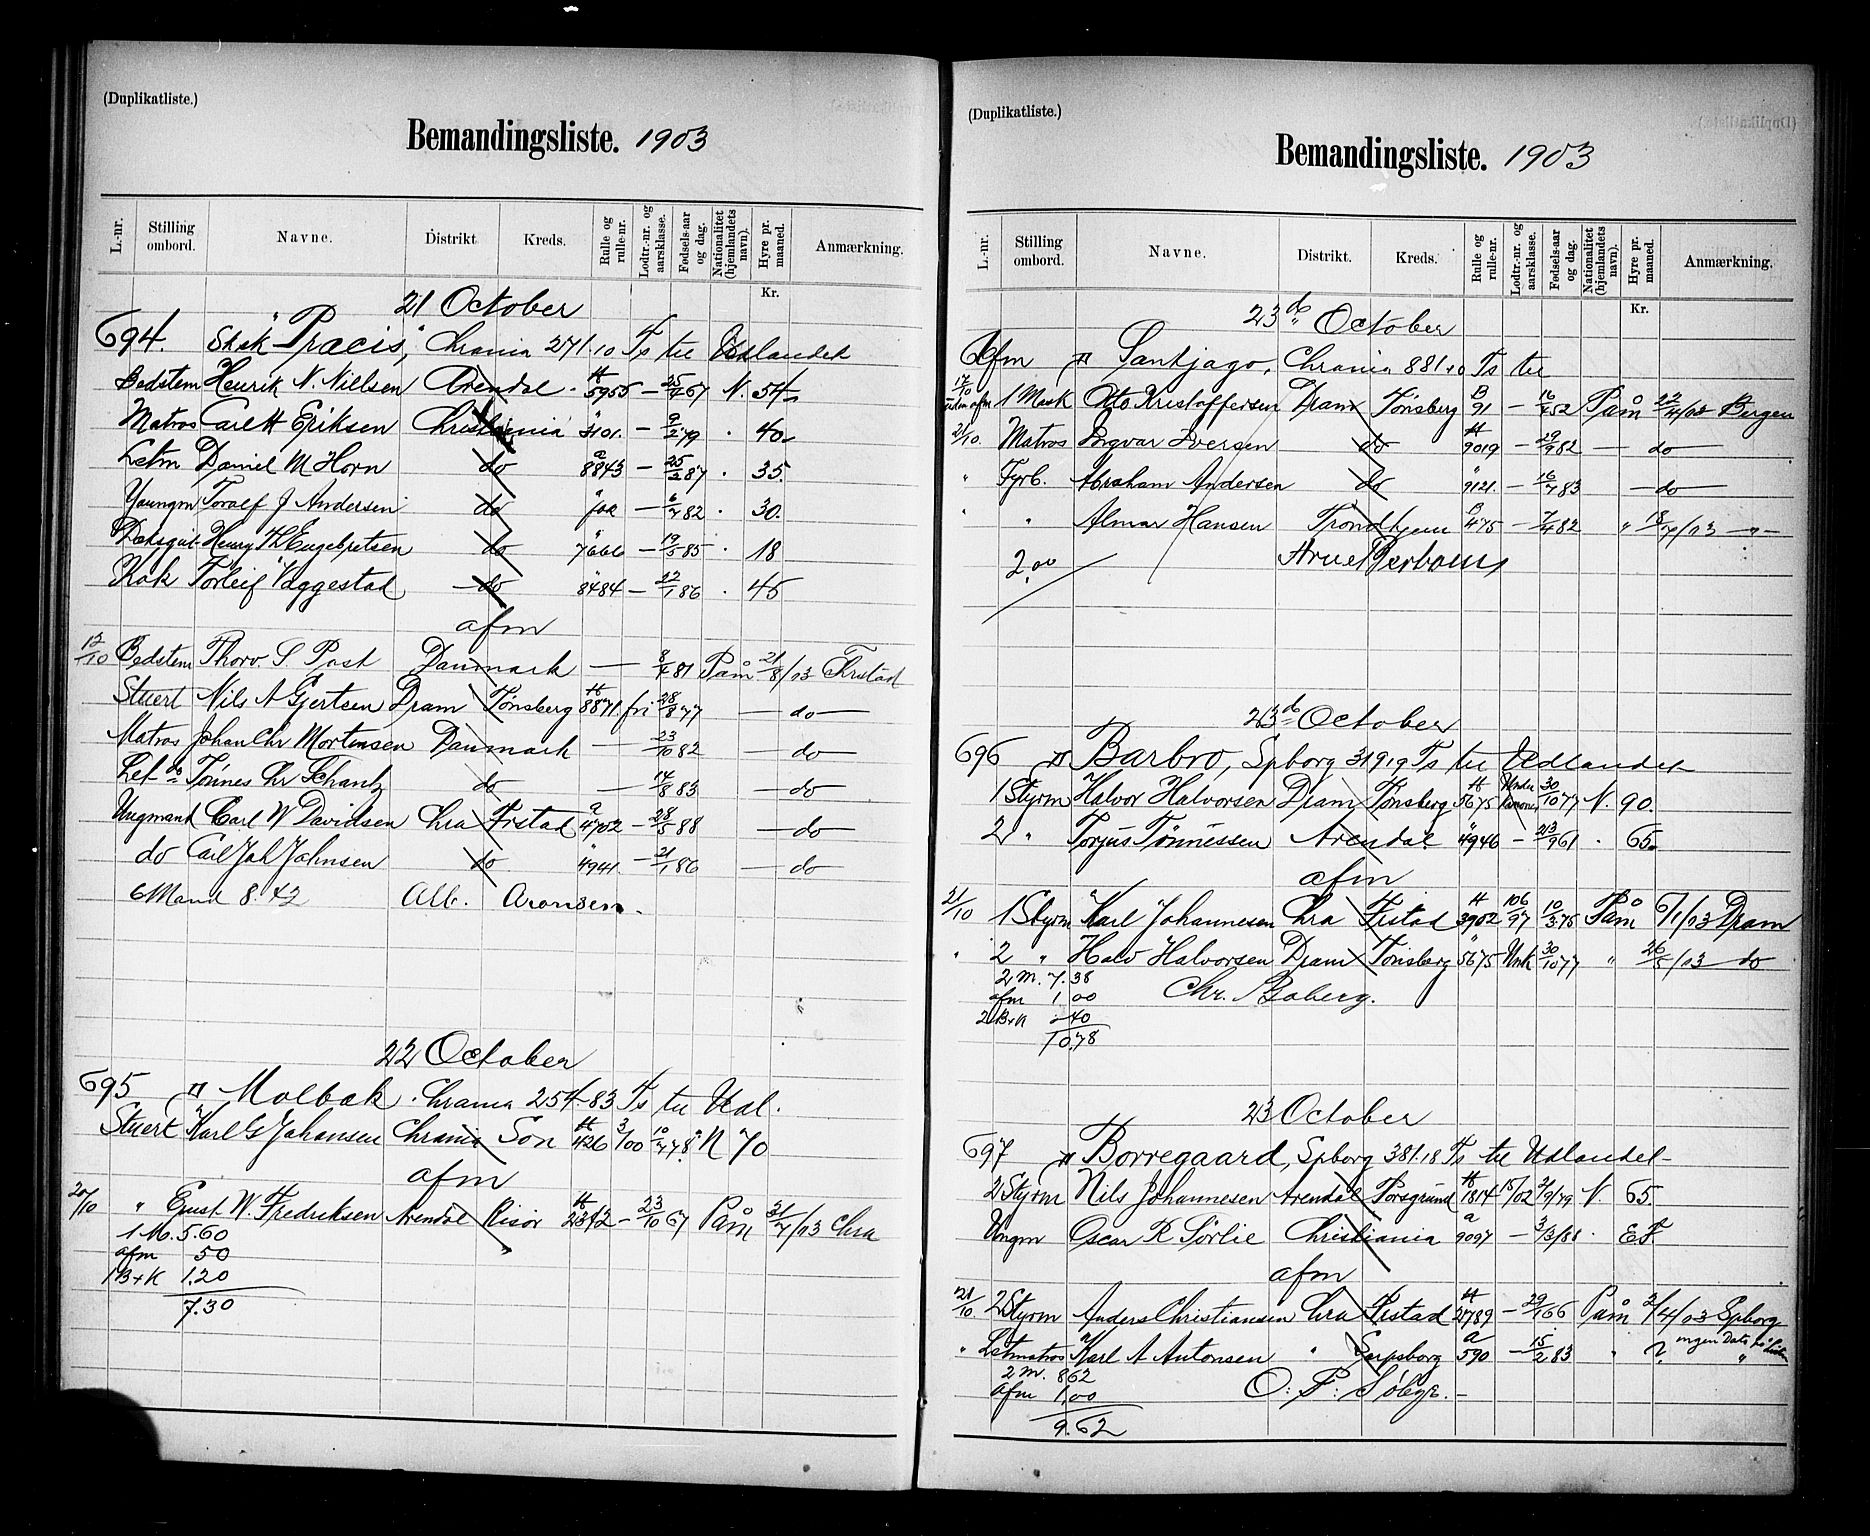 (Duplikatliste.)
Bemandingsliste. 1903
L.-nr. Stilling ombord. Navne. Distrikt Kreds. Rulle og rulle-nr. Lodtr.-nr. og aarsklasse. Fødsels-aar og dag. Nationalitet (hjemlandets navn). Hyre pr. maaned. Anmærkning.
Kr.
21 October
694. Skøk "Præcis", Chrania 271.10 Ts til Udlandet
Bedstem Henrik N. Nielsen Arendal 5955 — 25/4 67 N. 54
Matros Carl H Eriksen Christiania 3101. — 9/2 79 . 40
Letm Daniel M Horn do 8843 — 25/2 87 . 35.
Youngm Toralf J Andersen do — 6/7 82 . 30.
Dæksgut Henry Th Engebretsen do 7666 — 19/5 85 . 18
Kok Torleif Vaggestad do 8484 — 22/1 86 . 45
afm
12/10 Bedstem Thorv S Post Danmark — 8/4 81 Påm 21/8/03 Frstad
Stuert Nils A Gjertsen Dram Tønsberg 8871. fri 28/8 77 — do —
Matros Johan Chr Mortensen Danmark — 23/10 82 — do —
Let do Tønnes Chr Schantz do — 14/8 83 — do —
Ungmand Carl W Davidsen Chra Frstad a 4702 — 28/5 88 — do
do Carl Joh Johnsen do 4941. — 21/1 86 — do
6 Mand 8.42 Alb. Aronsen.
22 October
695 " Molbak. Chrania 254.83 Ts til Udl.
Stuert Karl G Johansen Chrania Son 426 3/00 10/7 78 N 70
afm
20/10 " Gust. W. Fredriksen Arendal Risør 2342 — 23/10 67 Påm 31/7/03 Chra
1 M. 5.60
afm 50
1 B+K 1.20
7.30
(Duplikatliste.)
Bemandingsliste. 1903
L.-nr. Stilling ombord. Navne. Distrikt. Kreds. Rulle og rulle-nr. Lodtr.-nr. og aarsklasse. Fødsels-aar og dag. Nationalitet (hjemlandets navn). Hyre pr. maaned. Anmærkning.
Kr.
23 do October
Afm " Santjago, Chrania 881.10 Ts til
17/10 1 Mask Otto Kristoffersen Dram Tønsberg B 91 — 16/4 52 Påm 22/4/03 Bergen
21/10. Matros Ingvar Iversen do 9019 — 29/9 82 — do —
" Fyrb. Abraham Andersen do 9121. — 16/7 83 — do —
" " Almar Hansen Trondhjem B 475 — 7/4 82 " 18/7/03 — " —
2.00
23 do October
696 " Barbro, Spborg 319.19 Ts til Udlandet
1 Styrm Halvor Halvorsen Dram Tønsberg 5675 30/10 77 N. 90.
2 " Torjus Tønnessen Arendal 4946 — 23/9 61 . 65.
afm
21/10 1 Styrm Karl Johannesen Chra Frstad 3902 106/97 10/3 75 Påm 6/1/03 Dram
" 2 " Halv Halvorsen Dram Tønsberg 5675 Unk 30/10 77 " 26/5/03 do
2 M. 7.38
afm 1.00 Chr. Boberg.
2 B+K 40
10.78
23 October
697 " Borregaard, Spborg 381.18 Ts til Udlandet
2 Styrm Nils Johannesen Arendal Porsgrund 1814 15/02 21/9/79 N. 65.
Ungm Oscar R Sørlie Christiania a 9097 — 3/3/88 . E F.
afm
21/10. 2 Styrm Anders Christiansen Chra Frstad 2789 — 29/1 66 Påm 2/4/03 Spborg
" Letmatros Karl A Antonsen " Sarpsborg a 590 — 15/2 83 " ? ingen Dato på
2 M. 8.62
afm 1.00
9.62